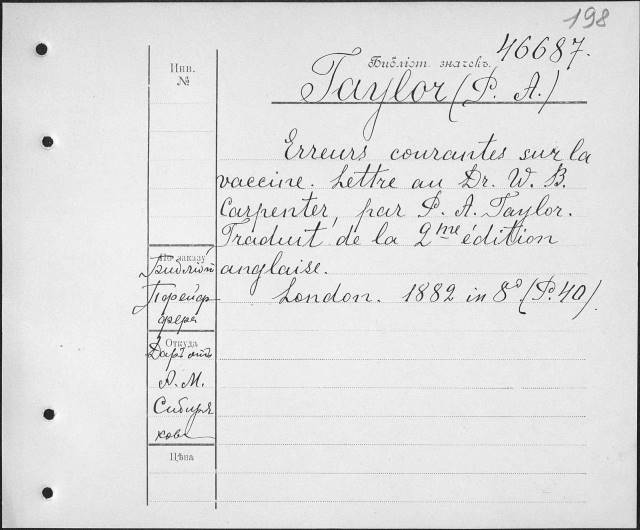 198
46687.
Библіот. значекъ.
Инв.
№
Taylor (P. A.)
Erreurs courantes sur la
vaccine. Lettre au Dr. W. B.
Carpenter, par P. A. Taylor.
Traduit de la 2me édition
anglaise.
London. 1882 in 8o. (P. 40).
По заказу
Библіот
Порейор
фера
Откуда
Даръ отъ
А. М.
Сибиря
кова
Цѣна